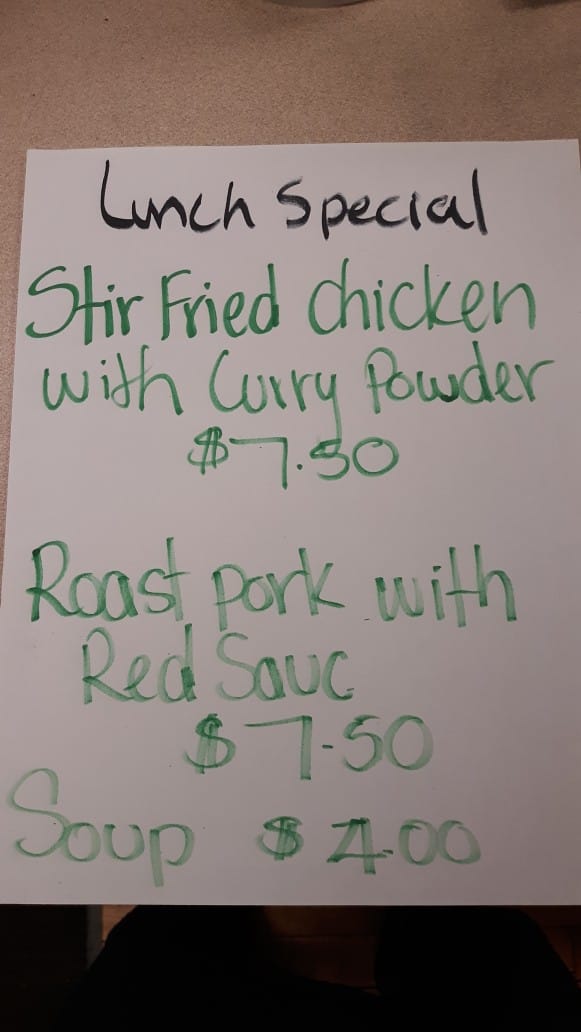 Lunch Special
Stir Fried chicken
with Curry Powder
$7.50
Roast pork with
Red Sauc
$7.50
Soup $4.00